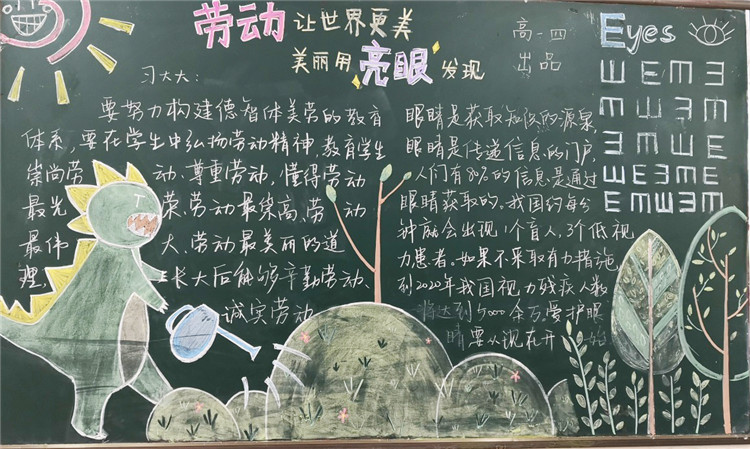 劳动 让世界更美
美丽用 亮眼 发现
高一四
出品
习大大：
要努力构建德智体美劳的教育
体系，要在学生中弘扬劳动精神，教育学生
崇尚劳动、尊重劳动，懂得劳动
最光荣、劳动最崇高、劳动
最伟大、劳动最美丽的道
理，长大后能够辛勤劳动、
诚实劳动
眼睛是获取知识的源泉，
眼睛是传递信息的门户，
人们有80%的信息是通过
眼睛获取的。我国约每分
钟就会出现1个盲人，3个低视
力患者。如果不采取有力措施
到2020年我国视力残疾人数
将达到5000余万。爱护眼
睛要从现在开始
Eyes
Ш E M Ǝ
M Ш Ǝ M
Ǝ M Ш E
Ш E Ǝ M E
E M Ш Ǝ M